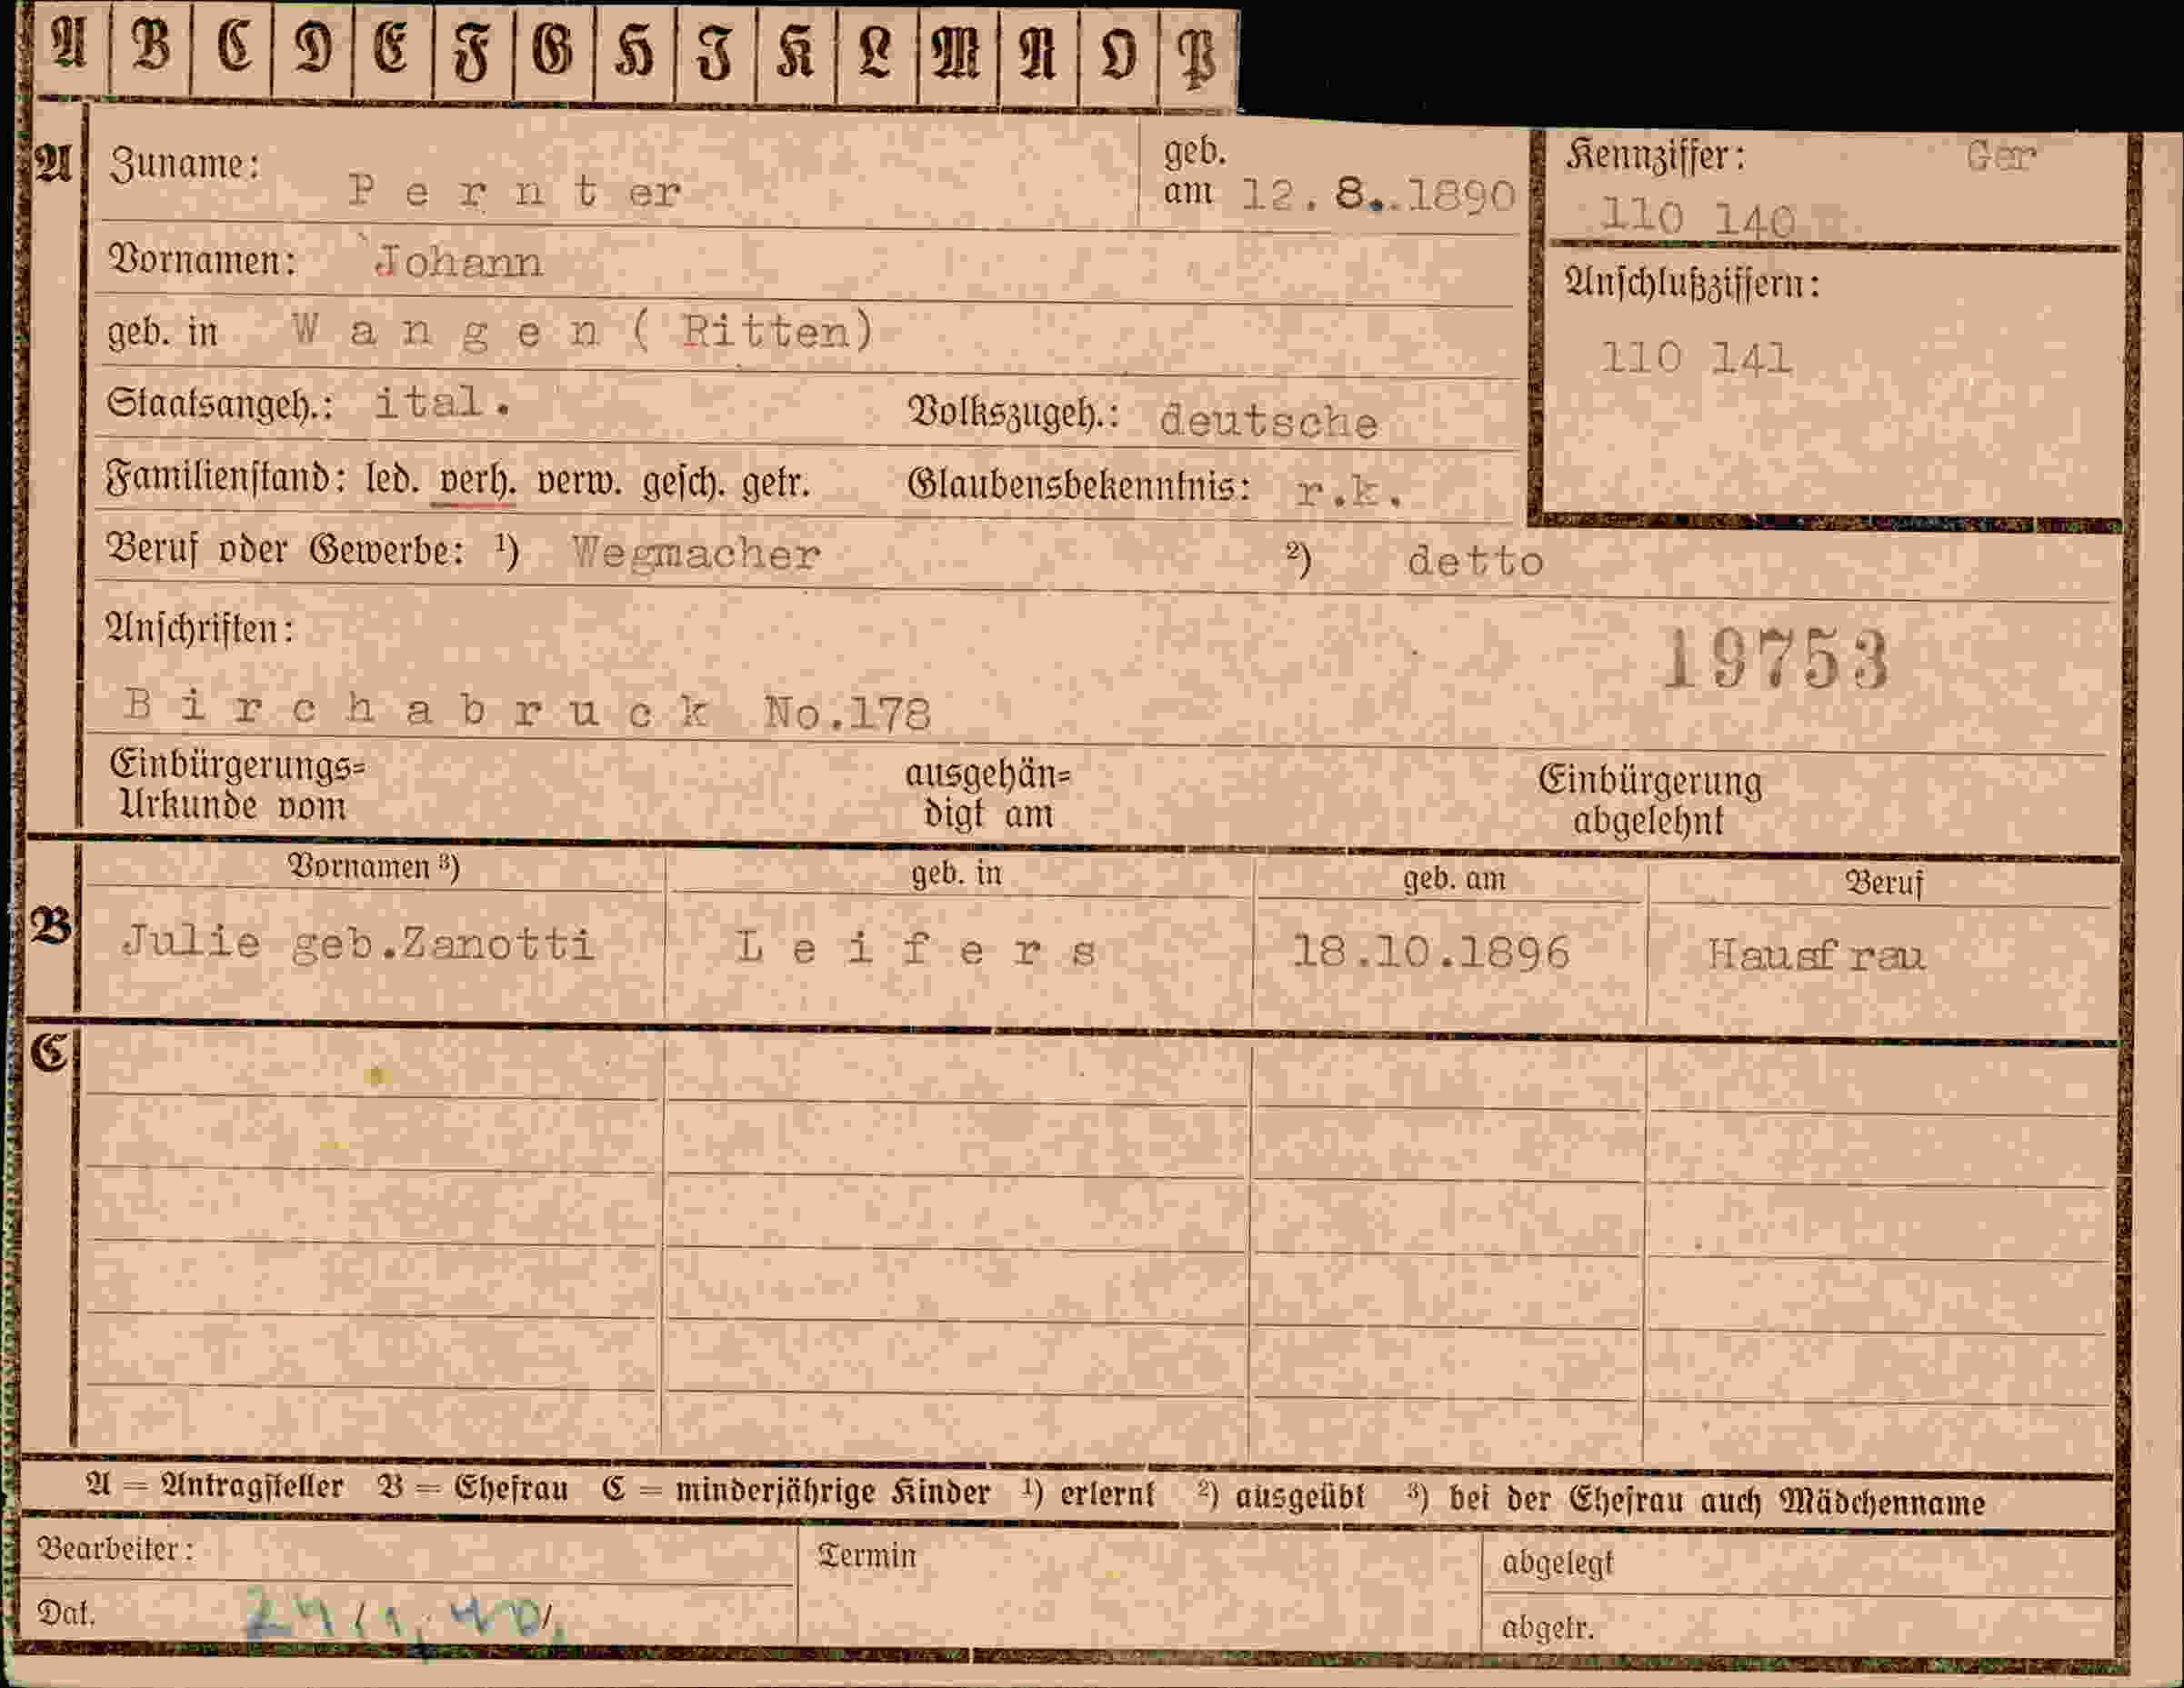 A B C D E F G H I K L M N O P
A Zuname: Pernter geb. am 12.8..1890 Kennziffer: Ger
110 140
Vornamen: Johann
Anschlußziffern:
geb. in Wangen ( Ritten)
110 141
Staatsangeh.: ital. Volkszugeh.: deutsche
Familienstand: led. verh. verw. gesch. getr. Glaubensbekenntnis: r.k.
Beruf oder Gewerbe: ¹) Wegmacher ²) detto
Anschriften:
19753
Birchabruck No.178
Einbürgerungs= ausgehän= Einbürgerung
Urkunde vom digt am abgelehnt
Vornamen ³) geb. in geb. am Beruf
B Julie geb.Zanotti Leifers 18.10.1896 Hausfrau
C
A = Antragsteller B = Ehefrau C = minderjährige Kinder ¹) erlernt ²) ausgeübt ³) bei der Ehefrau auch Mädchenname
Bearbeiter: Termin abgelegt
Dat. abgetr.